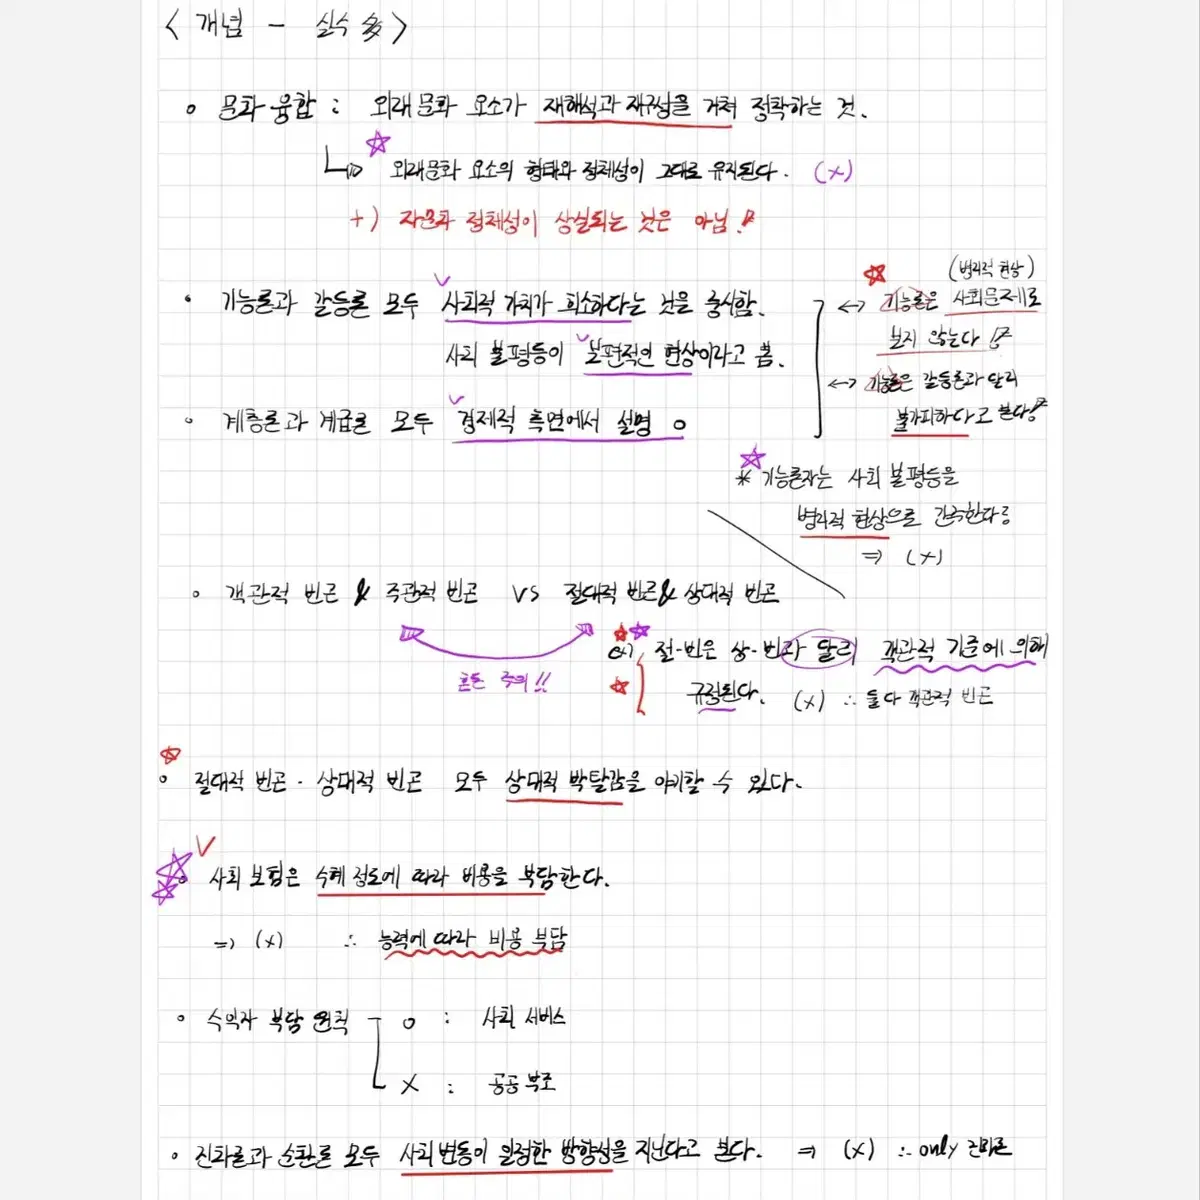 < 개념 - 실수 多 >
◦ 문화 융합 : 외래문화 요소가 재해석과 재구성을 거쳐 정착하는 것.
☆ 외래문화 요소의 형태와 정체성이 그대로 유지된다. (x)
+) 자문화 정체성이 상실되는 것은 아님!
• 기능론과 갈등론 모두 사회적 가치가 희소하다는 것을 중시함.
사회 불평등이 보편적인 현상이라고 봄.
☆ (병리적 현상)
↔ 기능론은 사회문제로
보지 않는다!
↔ 기능론은 갈등론과 달리
불가피하다고 본다!
• 계층론과 계급론 모두 경제적 측면에서 설명 o
☆
* 기능론자는 사회 불평등을
병리적 현상으로 간주한다
⇒ (x)
• 객관적 빈곤 & 주관적 빈곤 vs 절대적 빈곤 & 상대적 빈곤
혼돈 주의!!
☆☆ 절·빈은 상·빈과 달리 객관적 기준에 의해
☆ 규정된다. (x) ∴ 둘다 객관적 빈곤
☆
◦ 절대적 빈곤 · 상대적 빈곤 모두 상대적 박탈감을 야기할 수 있다.
☆☆ 사회 보험은 수혜 정도에 따라 비용을 부담한다.
⇒ (x) ∴ 능력에 따라 비용 부담
• 수익자 부담 원칙 o : 사회 서비스
x : 공공 부조
• 진화론과 순환론 모두 사회변동이 일정한 방향성을 지닌다고 본다. ⇒ (x) ∴ only 진화론